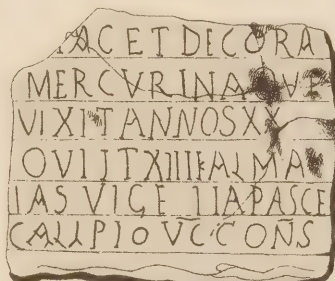 IACET DECORA
MERCVRINA QVE
VIXIT ANNOS XX
OVIIT XIIII KAL MA
IAS VIGE IIA PASCE
CALLPIO V̄C CONS̄